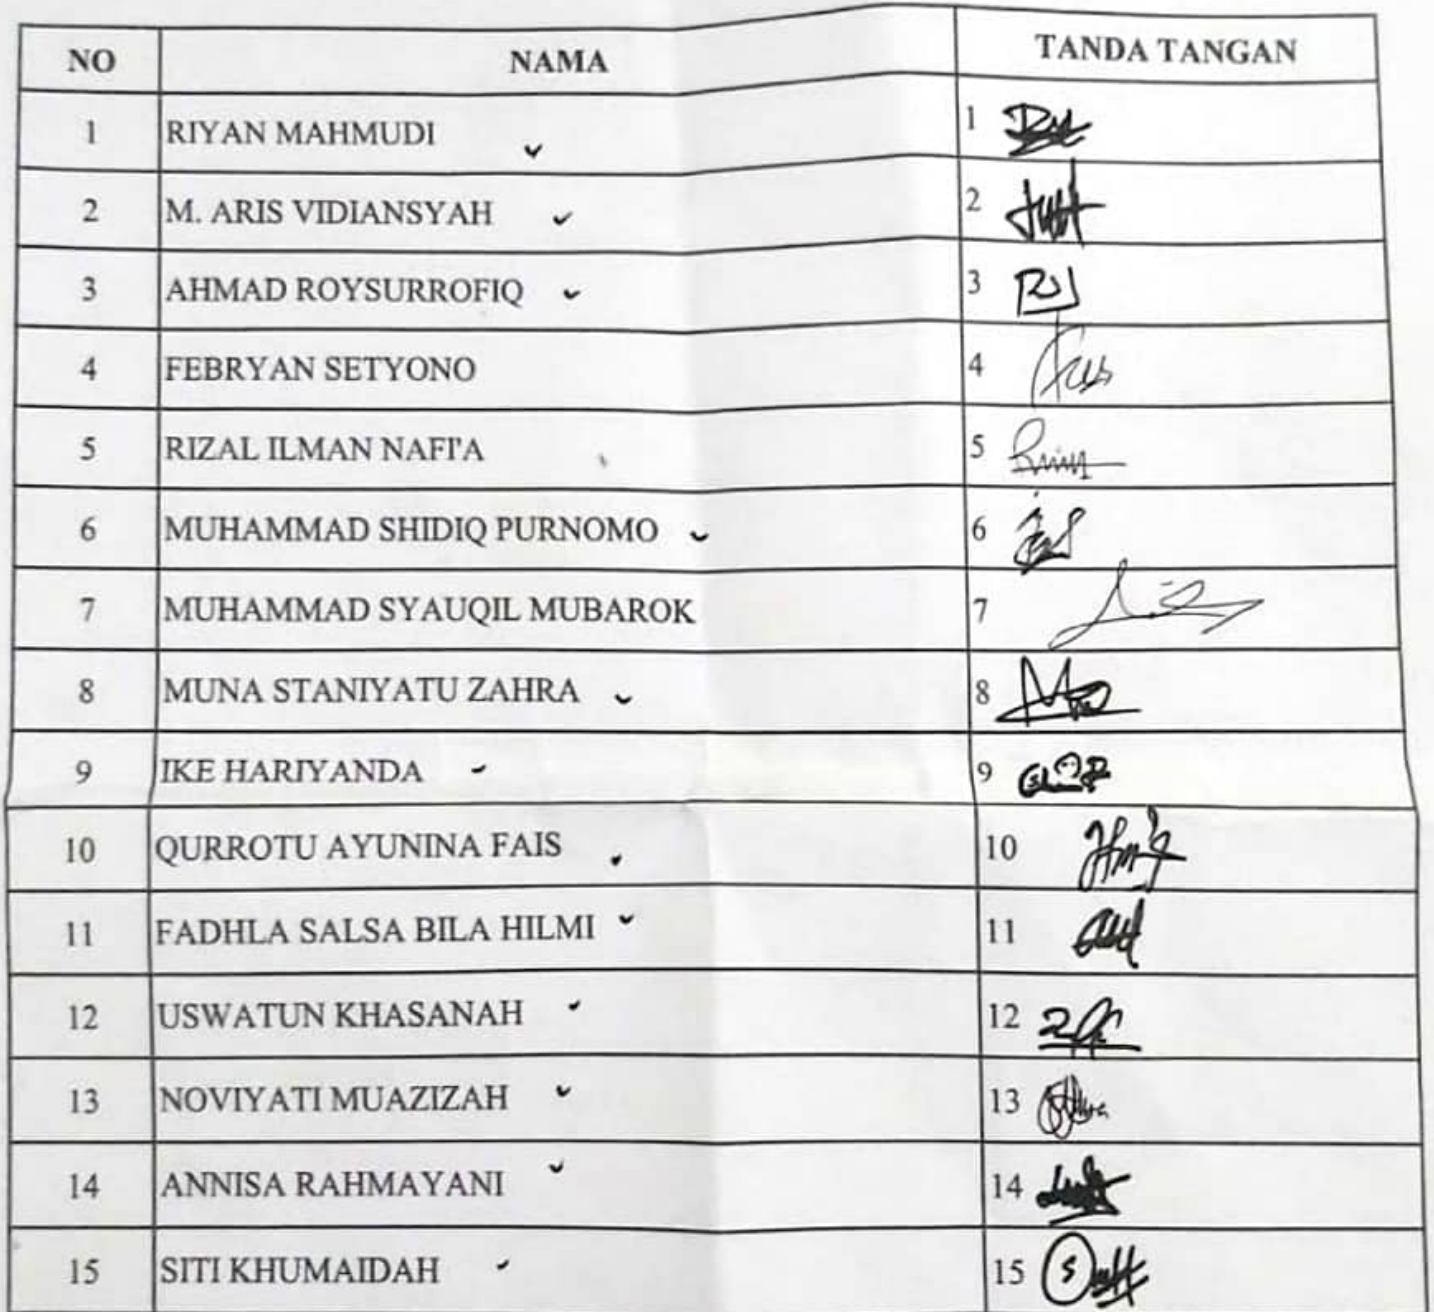 NO NAMA TANDA TANGAN
1 RIYAN MAHMUDI 1
2 M. ARIS VIDIANSYAH 2
3 AHMAD ROYSURROFIQ 3
4 FEBRYAN SETYONO 4
5 RIZAL ILMAN NAFI'A 5
6 MUHAMMAD SHIDIQ PURNOMO 6
7 MUHAMMAD SYAUQIL MUBAROK 7
8 MUNA STANIYATU ZAHRA 8
9 IKE HARIYANDA 9
10 QURROTU AYUNINA FAIS 10
11 FADHLA SALSA BILA HILMI 11
12 USWATUN KHASANAH 12
13 NOVIYATI MUAZIZAH 13
14 ANNISA RAHMAYANI 14
15 SITI KHUMAIDAH 15